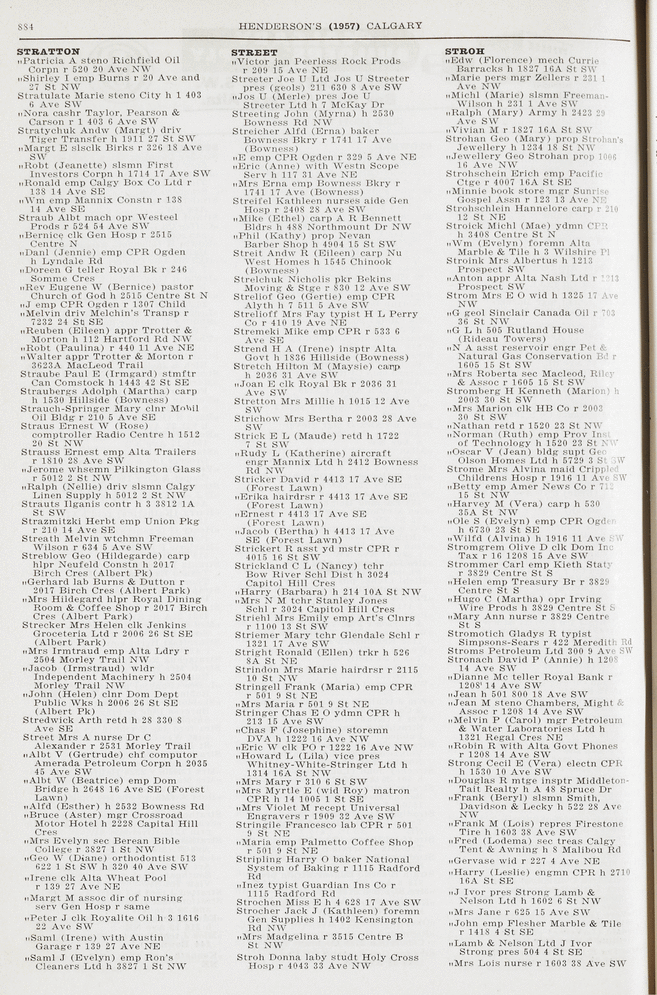 884
HENDERSON'S (1957) CALGARY
STRATTON
"Patricia A steno Richfield Oil
Corpn r 520 20 Ave NW
"Shirley I emp Burns r 20 Ave and
27 St NW
Stratulate Marie steno City h 1 403
6 Ave SW
"Nora cashr Taylor, Pearson &
Carson r 1 403 6 Ave SW
Stratychuk Andw (Margt) driv
Tiger Transfer h 1911 27 St SW
"Margt E slsclk Birks r 326 18 Ave
SW
"Robt (Jeanette) slsmn First
Investors Corpn h 1714 17 Ave SW
"Ronald emp Calgy Box Co Ltd r
138 14 Ave SE
"Wm emp Mannix Constn r 138
14 Ave SE
Straub Albt mach opr Westeel
Prods r 524 54 Ave SW
"Bernice clk Gen Hosp r 2515
Centre N
"Danl (Jennie) emp CPR Ogden
h Lyndale Rd
"Doreen G teller Royal Bk r 246
Somme Cres
"Rev Eugene W (Bernice) pastor
Church of God h 2515 Centre St N
"J emp CPR Ogden r 1307 Child
"Melvin driv Melchin's Transp r
7232 24 St SE
"Reuben (Eileen) appr Trotter &
Morton h 112 Hartford Rd NW
"Robt (Paulina) r 440 11 Ave NE
"Walter appr Trotter & Morton r
3623A MacLeod Trail
Straube Paul E (Irmgard) stmftr
Can Comstock h 1443 42 St SE
Straubergs Adolph (Martha) carp
h 1530 Hillside (Bowness)
Strauch-Springer Mary clnr Mobil
Oil Bldg r 210 5 Ave SE
Straus Ernest W (Rose)
comptroller Radio Centre h 1512
20 St NW
Strauss Ernest emp Alta Trailers
r 1810 28 Ave SW
"Jerome whsemn Pilkington Glass
r 5012 2 St NW
"Ralph (Nellie) driv slsmn Calgy
Linen Supply h 5012 2 St NW
Strauts Ilganis contr h 3 3812 1A
St SW
Strazmitzki Herbt emp Union Pkg
r 210 14 Ave SE
Streath Melvin wtchmn Freeman
Wilson r 634 5 Ave SW
Streblow Geo (Hildegarde) carp
hlpr Neufeld Constn h 2017
Birch Cres (Albert Pk)
"Gerhard lab Burns & Dutton r
2017 Birch Cres (Albert Park)
"Mrs Hildegard hlpr Royal Dining
Room & Coffee Shop r 2017 Birch
Cres (Albert Pk)
Strecker Mrs Helen clk Jenkins
Groceteria Ltd r 2006 26 St SE
(Albert Park)
"Mrs Irmtraud emp Alta Ldry r
2504 Morley Trail NW
"Jacob (Irmstraud) wldr
Independent Machinery h 2504
Morley Trail NW
"John (Helen) clnr Dom Dept
Public Wks h 2006 26 St SE
(Albert Pk)
Stredwick Arth retd h 28 330 8
Ave SE
Street Mrs A nurse Dr C
Alexander r 2531 Morley Trail
"Albt V (Gertrude) chf computor
Amerada Petroleum Corpn h 2035
45 Ave SW
"Albt W (Beatrice) emp Dom
Bridge h 2648 16 Ave SE (Forest
Lawn)
"Alfd (Esther) h 2532 Bowness Rd
"Bruce (Aster) mgr Crossroad
Motor Hotel h 2228 Capital Hill
Cres
"Mrs Evelyn sec Berean Bible
College r 3827 1 St NW
"Geo W (Diane) orthodontist 513
622 1 St SW h 320 40 Ave SW
"Irene clk Alta Wheat Pool
r 139 27 Ave NE
"Margt M assoc dir of nursing
serv Gen Hosp r same
"Peter J clk Royalite Oil h 3 1616
22 Ave SW
"Saml (Irene) with Austin
Garage r 139 27 Ave NE
"Saml J (Evelyn) emp Ron's
Cleaners Ltd h 3827 1 St NW
STREET
"Victor jan Peerless Rock Prods
r 209 15 Ave NE
Streeter Joe U Ltd Jos U Streeter
pres (geols) 211 630 8 Ave SW
"Jos U (Merle) pres Joe U
Streeter Ltd h 7 McKay Dr
Streeting John (Myrna) h 2530
Bowness Rd NW
Streicher Alfd (Erna) baker
Bowness Bkry r 1741 17 Ave
(Bowness)
"E emp CPR Ogden r 329 5 Ave NE
"Eric (Anne) with Westn Scope
Serv h 117 31 Ave NE
"Mrs Erna emp Bowness Bkry r
1741 17 Ave (Bowness)
Streifel Kathleen nurses aide Gen
Hosp r 2408 28 Ave SW
"Mike (Ethel) carp A R Bennett
Bldrs h 488 Northmount Dr NW
"Phil (Kathy) prop Nevan
Barber Shop h 4904 15 St SW
Streit Andw R (Eileen) carp Nu
West Homes h 1545 Chinook
(Bowness)
Strelchuk Nicholis pkr Bekins
Moving & Stge r 830 12 Ave SW
Streliof Geo (Gertie) emp CPR
Alyth h 7 511 5 Ave SW
Strelioff Mrs Fay typist H L Perry
Co r 410 19 Ave NE
Stremeki Mike emp CPR r 533 6
Ave SE
Strend H A (Irene) insptr Alta
Govt h 1836 Hillside (Bowness)
Stretch Hilton M (Maysie) carp
h 2036 31 Ave SW
"Joan E clk Royal Bk r 2036 31
Ave SW
Stretton Mrs Millie h 1015 12 Ave
SW
Strichow Mrs Bertha r 2003 28 Ave
SW
Strick E L (Maude) retd h 1722
7 St SW
"Rudy L (Katherine) aircraft
engr Mannix Ltd h 2412 Bowness
Rd NW
Stricker David r 4413 17 Ave SE
(Forest Lawn)
"Erika hairdrsr r 4413 17 Ave SE
(Forest Lawn)
"Ernest r 4413 17 Ave SE
(Forest Lawn)
"Jacob (Bertha) h 4413 17 Ave
SE (Forest Lawn)
Strickert R asst yd mstr CPR r
4015 16 St SW
Strickland C L (Nancy) tchr
Bow River Schl Dist h 3024
Capitol Hill Cres
"Harry (Barbara) h 214 10A St NW
"Mrs N M tchr Stanley Jones
Schl r 3024 Capitol Hill Cres
Striehl Mrs Emily emp Art's Clnrs
r 1100 13 St SW
Striemer Mary tchr Glendale Schl r
1321 17 Ave SW
Stright Ronald (Ellen) trkr h 526
8A St NE
Strindon Mrs Marie hairdrsr r 2115
10 St NW
Stringell Frank (Maria) emp CPR
r 501 9 St NE
"Mrs Maria r 501 9 St NE
Stringer Chas E O ydmn CPR h
213 15 Ave SW
"Chas F (Josephine) storemn
DVA h 1222 16 Ave NW
"Eric W clk PO r 1222 16 Ave NW
"Howard L (Lila) vice pres
Whitney-White-Stringer Ltd h
1314 16A St NW
"Mrs Mary r 310 6 St SW
"Mrs Myrtle E (wid Roy) matron
CPR h 14 1005 1 St SE
"Mrs Violet M recept Universal
Engravers r 1909 32 Ave SW
Stringile Francesco lab CPR r 501
9 St NE
"Maria emp Palmetto Coffee Shop
r 501 9 St NE
Stripling Harry O baker National
System of Baking r 1115 Radford
Rd
"Inez typist Guardian Ins Co r
1115 Radford Rd
Strochen Miss E h 4 628 17 Ave SW
Strocher Jack J (Kathleen) foremn
Gen Supplies h 1402 Kensington
Rd NW
"Mrs Madgelina r 3515 Centre B
St NW
Stroh Donna laby studt Holy Cross
Hosp r 4043 33 Ave NW
STROH
"Edw (Florence) mech Currie
Barracks h 1827 16A St SW
"Marie pers mgr Zellers r 231 1
Ave NW
"Michl (Marie) slsmn Freeman-
Wilson h 231 1 Ave NW
"Ralph (Mary) Army h 2423 29
Ave SW
"Vivian M r 1827 16A St SW
Strohan Geo (Mary) prop Strohan's
Jewellery h 1234 18 St NW
"Jewellery Geo Strohan prop 1006
16 Ave NW
Strohschein Erich emp Pacific
Ctge r 4007 16A St SE
"Minnie book store mgr Sunrise
Gospel Assn r 123 13 Ave NE
Strohschlein Hannelore carp r 210
12 St NE
Stroick Michl (Mae) ydmn CPR
h 3408 Centre St N
"Wm (Evelyn) foremn Alta
Marble & Tile h 3 Wilshire Pl
Stroink Mrs Albertus h 1213
Prospect SW
"Anton appr Alta Nash Ltd r 1213
Prospect SW
Strom Mrs E O wid h 1325 17 Ave
NW
"G geol Sinclair Canada Oil r 703
36 St NW
"G L h 505 Rutland House
(Rideau Towers)
"N A asst reservoir engr Pet &
Natural Gas Conservation Bd r
1605 15 St SW
"Mrs Roberta sec Macleod, Riley
& Assoc r 1605 15 St SW
Stromberg H Kenneth (Marion) h
2003 30 St SW
"Mrs Marion clk HB Co r 2003
30 St SW
"Nathan retd r 1520 23 St NW
"Norman (Ruth) emp Prov Inst
of Technology h 1520 23 St NW
"Oscar V (Jean) bldg supt Geo
Olson Homes Ltd h 5729 3 St SW
Strome Mrs Alvina maid Crippled
Childrens Hosp r 1916 11 Ave SW
"Betty emp Amer News Co r 712
15 St NW
"Harvey M (Vera) carp h 530
35A St NW
"Ole S (Evelyn) emp CPR Ogden
h 6730 23 St SE
"Wilfd (Alvina) h 1916 11 Ave SW
Stromgren Olive D clk Dom Inc
Tax r 16 1208 15 Ave SW
Strommer Carl emp Kieth Staty
r 3829 Centre St S
"Helen emp Treasury Br r 3829
Centre St S
"Hugo C (Martha) opr Irving
Wire Prods h 3829 Centre St S
"Mary Ann nurse r 3829 Centre
St S
Stromotich Gladys R typist
Simpsons-Sears r 422 Meredith Rd
Stroms Petroleum Ltd 300 9 Ave SW
Stronach David P (Annie) h 1208
14 Ave SW
"Dianne Mc teller Royal Bank r
1208 14 Ave SW
"Jean h 501 800 18 Ave SW
"Jean M steno Chambers, Might &
Assoc r 1208 14 Ave SW
"Melvin P (Carol) mgr Petroleum
& Water Laboratories Ltd h
1321 Regal Cres NE
"Robin R with Alta Govt Phones
r 1208 14 Ave SW
Strong Cecil E (Vera) electn CPR
h 1530 10 Ave SW
"Douglas R mtge insptr Middleton-
Tait Realty h A 48 Spruce Dr
"Frank (Beryl) slsmn Smith,
Davidson & Lecky h 522 28 Ave
NW
"Frank M (Lois) repres Firestone
Tire h 1603 38 Ave SW
"Fred (Lodema) sec treas Calgy
Tent & Awning h 8 Malibou Rd
"Gervase wid r 227 4 Ave NE
"Harry (Leslie) engmn CPR h 2710
16A St SE
"J Ivor pres Strong Lamb &
Nelson Ltd h 1602 6 St NW
"Mrs Jane r 625 15 Ave SW
"John emp Flesher Marble & Tile
r 1418 4 St SE
"Lamb & Nelson Ltd J Ivor
Strong pres 504 4 St SE
"Mrs Lois nurse r 1603 38 Ave SW